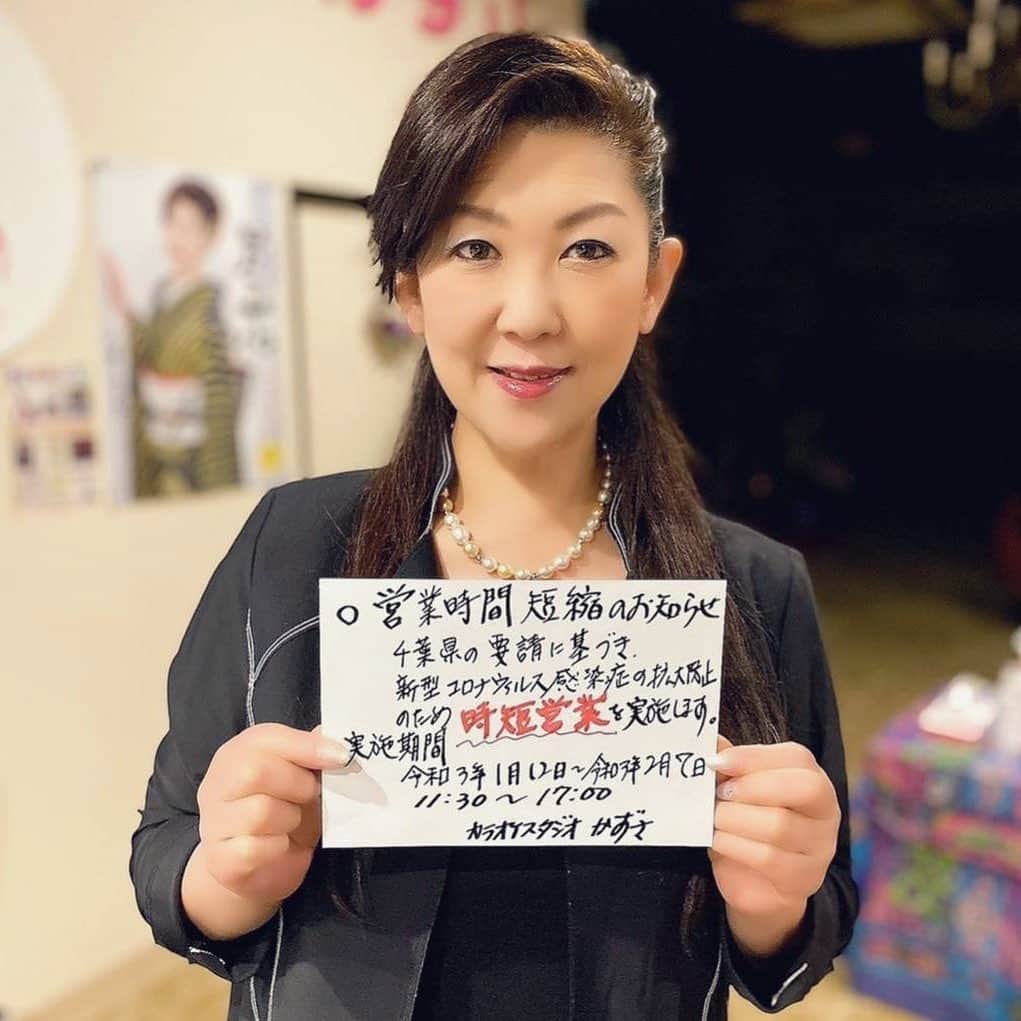 ○ 営業時間短縮のお知らせ
千葉県の要請に基づき.
新型コロナウィルス感染症の拡大防止
のため 時短営業を実施します。
実施期間
令和3年1月12日〜令和3年2月7日
11:30〜17:00
カラオケスタジオ かずさ